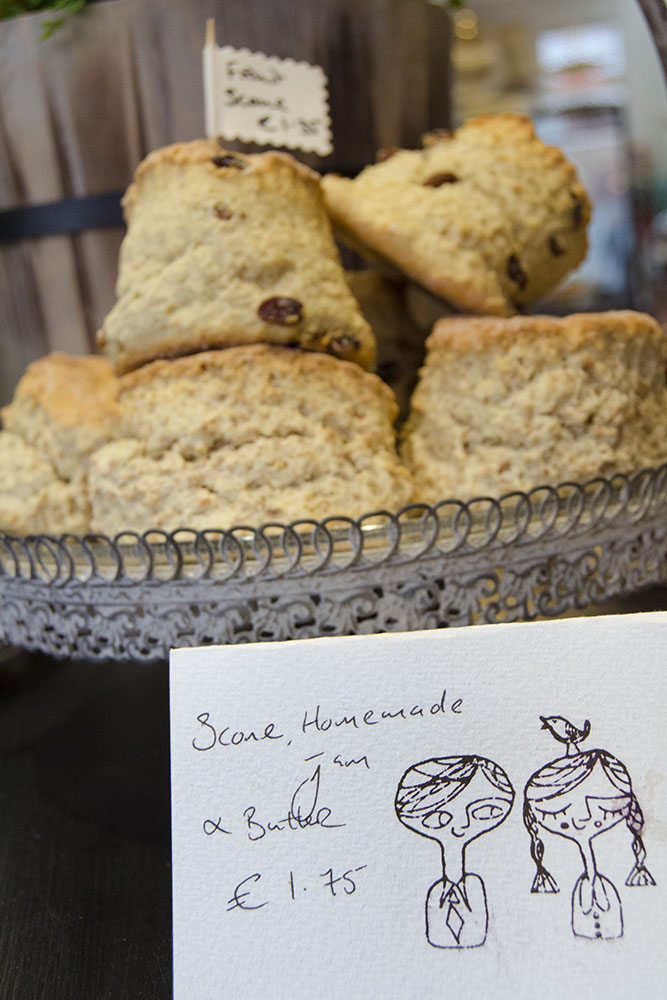 Fruit
Scone
€1.35
Scone, Homemade
Jam
& Butter
€ 1.75